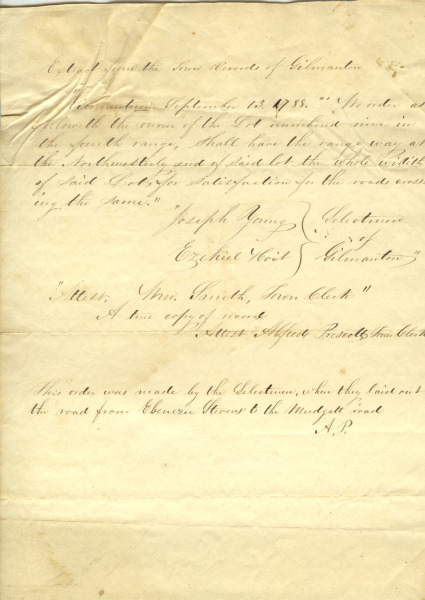 Extract from the Town Records of Gilmanton
"Gilmanton September 13, 1788. "We order as
followeth the owner of the Lot numbered nine in
the fourth range, shall have the range way at
the Northwesterly end of said lot the whole width
of said Lot, for satisfaction for the roads cross-
ing the same."
"Joseph Young } Selectmen
of
Ezekiel Hoit } Gilmanton"
"Attest, Wm. Smith, Town Clerk"
A true copy of record
Attest Alfred Prescott, Town Clerk
This order was made by the Selectmen, when they laid out
the road from Ebenezer Stevens' to the Mudgett road
A.P.